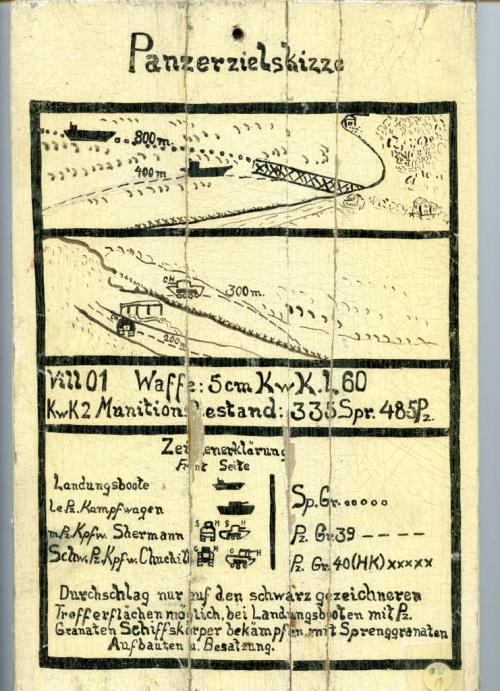 Panzerzielskizze
800m.
400m.
CH
300m.
200m
VIII 01 Waffe: 5cm KwK. L60
KwK2 Munitionsbestand: 335 Spr. 485 Pz.
Zeichenerklärung
Front Seite
Landungsboote
le Pz. Kampfwagen
m Pz. Kpfw. Shermann S H S H
Schw. Pz. Kpfw. Chuchill C H C H
Sp. Gr. ooooo
Pz. Gr 39 – – – – –
Pz. Gr. 40 (HK) xxxxx
Durchschlag nur auf den schwarz gezeichneren
Trofferflächen möglich, bei Landungsbooten mit Pz.
Granaten Schiffskörper bekämpfen, mit Sprenggranaten
Aufbauten u. Besatzung.